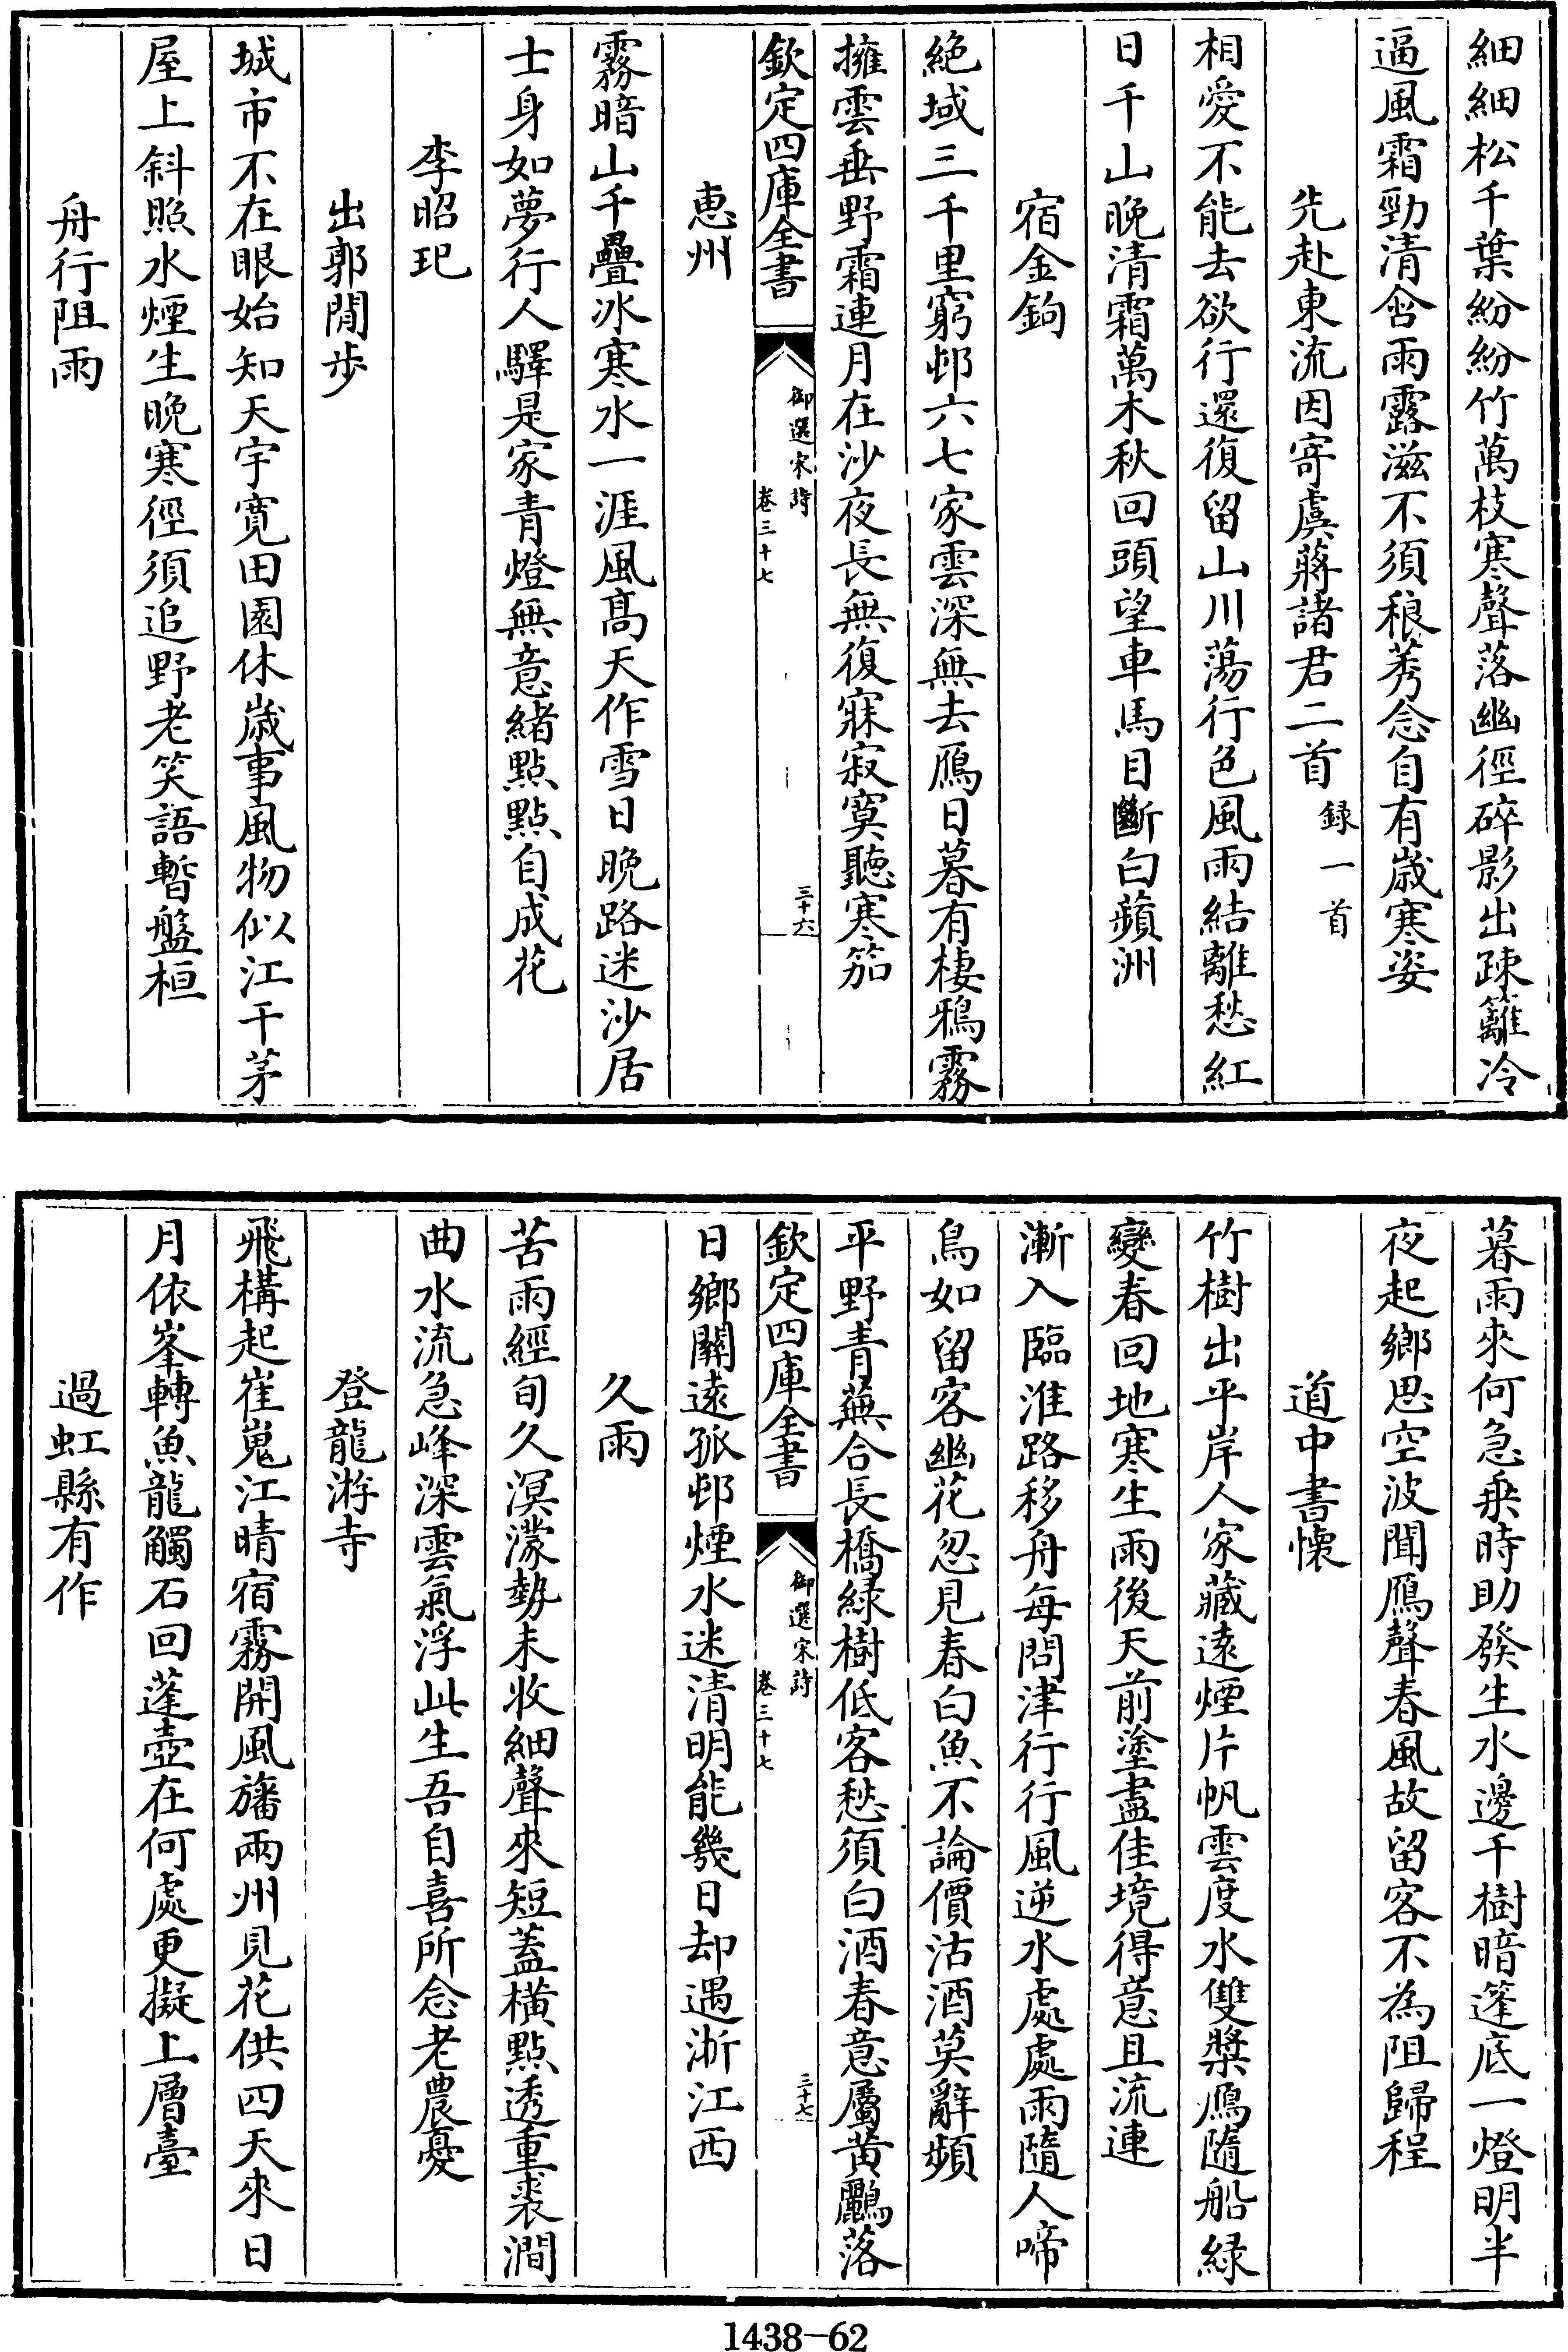 細細松千葉紛紛竹萬枝寒聲落幽徑碎影出疎籬冷
逼風霜勁清含雨露滋不須稂莠念自有歲寒姿
先赴東流因寄虞蔣諸君二首錄一首
相愛不能去欲行還復留山川蕩行色風雨結離愁紅
日千山晚清霜萬木秋回頭望車馬目斷白蘋洲
宿金鉤
絶域三千里窮邨六七家雲深無去鴈日暮有棲鴉霧
擁雲垂野霜連月在沙夜長無復寐寂寞聽寒笳
欽定四庫全書
御選宋詩
卷三十七
三十六
惠州
霧暗山千疊冰寒水一涯風髙天作雪日晚路迷沙居
士身如夢行人驛是家青燈無意緒點點自成花
李昭玘
出郭閒步
城市不在眼始知天宇寛田園休歲事風物似江干茅
屋上斜照水煙生晚寒徑須追野老笑語暫盤桓
舟行阻雨
暮雨來何急乗時助發生水邊千樹暗篷底一燈明半
夜起鄉思空波聞鴈聲春風故留客不為阻歸程
道中書懷
竹樹出平岸人家藏逺煙片帆雲度水雙槳鴈隨船緑
變春回地寒生雨後天前塗盡佳境得意且流連
漸入臨淮路移舟每問津行行風逆水處處雨隨人啼
鳥如留客幽花忽見春白魚不論價沽酒莫辭頻
平野青蕪合長橋緑樹低客愁須白酒春意屬黄鸝落
欽定四庫全書
御選宋詩
卷三十七
三十七
日鄉關逺孤邨煙水迷清明能幾日却遇淅江西
久雨
苦雨經旬久溟濛勢未收細聲來短蓋橫點透重裘澗
曲水流急峰深雲氣浮此生吾自喜所念老農憂
登龍游寺
飛構起崔嵬江晴宿霧開風旛兩州見花供四天來日
月依峯轉魚龍觸石回蓬壺在何處更擬上層臺
過虹縣有作
1438-62